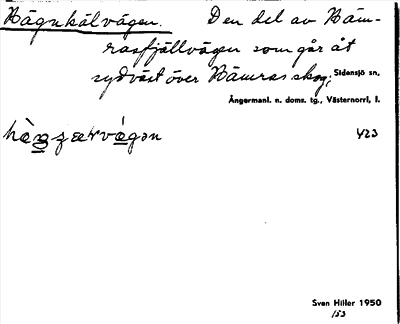 Bågnkälvägen. Den del av Bäm-
rasfjällvägen som går åt
sydväst över Bämras skog; Sidensjö sn,
Ångermanl. n. doms. tg., Västernorrl, l.
423
Sven Hiller 1950
153